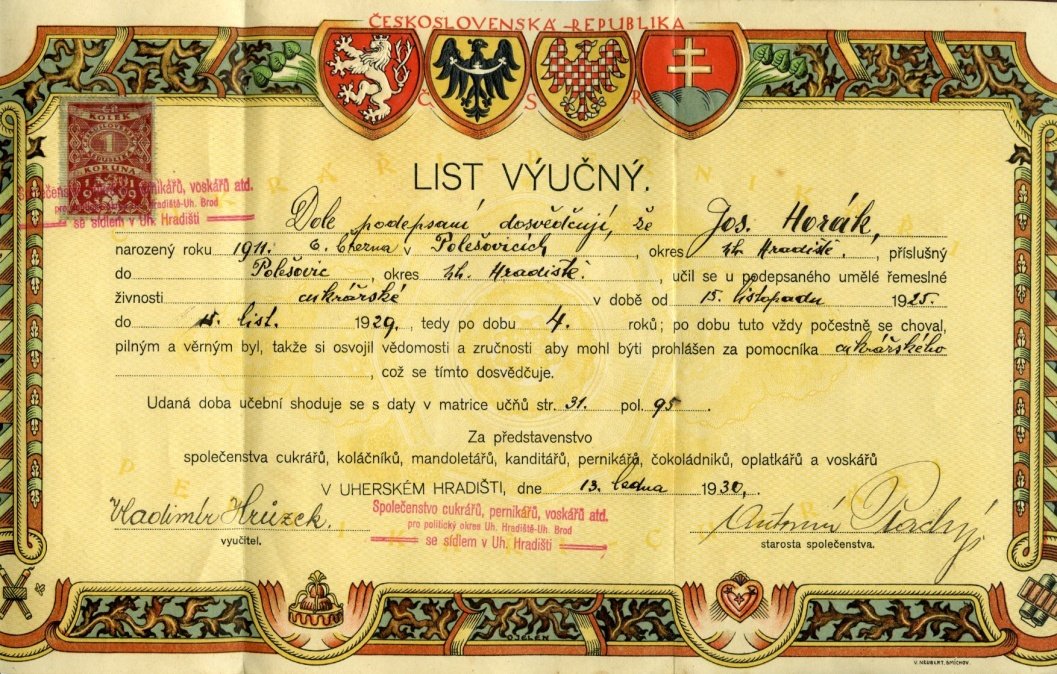 ČESKOSLOVENSKÁ REPUBLIKA
KOLEK
1
KORUNA
LIST VÝUČNÝ.
pernikářů, voskářů atd.
Hradiště-Uh. Brod
se sídlem v Uh. Hradišti
Dole podepsaní dosvědčují, že Jos. Horák,
narozený roku 1911. 6. června v Polešovicích, okres Uh. Hradiště., příslušný
do Polešovic, okres Uh. Hradiště., učil se u podepsaného umělé řemeslné
živnosti cukrářské v době od 15. listopadu 1925.
do 15. list. 1929., tedy po dobu 4. roků; po dobu tuto vždy počestně se choval,
pilným a věrným byl, takže si osvojil vědomosti a zručnosti aby mohl býti prohlášen za pomocníka cukrářského
, což se tímto dosvědčuje.
Udaná doba učební shoduje se s daty v matrice učňů str. 31. pol. 95.
Za představenstvo
společenstva cukrářů, koláčníků, mandoletářů, kanditářů, pernikářů, čokoládníků, oplatkářů a voskářů
V UHERSKÉM HRADIŠTI, dne 13. ledna 1930,.
Společenstvo cukrářů, pernikářů, voskářů atd.
pro politický okres Uh. Hradiště-Uh. Brod
se sídlem v Uh. Hradišti
Vladimír Hrůzek.
vyučitel.
Antonín
starosta společenstva.
O. JELEN
V. NEUBERT, SMÍCHOV.